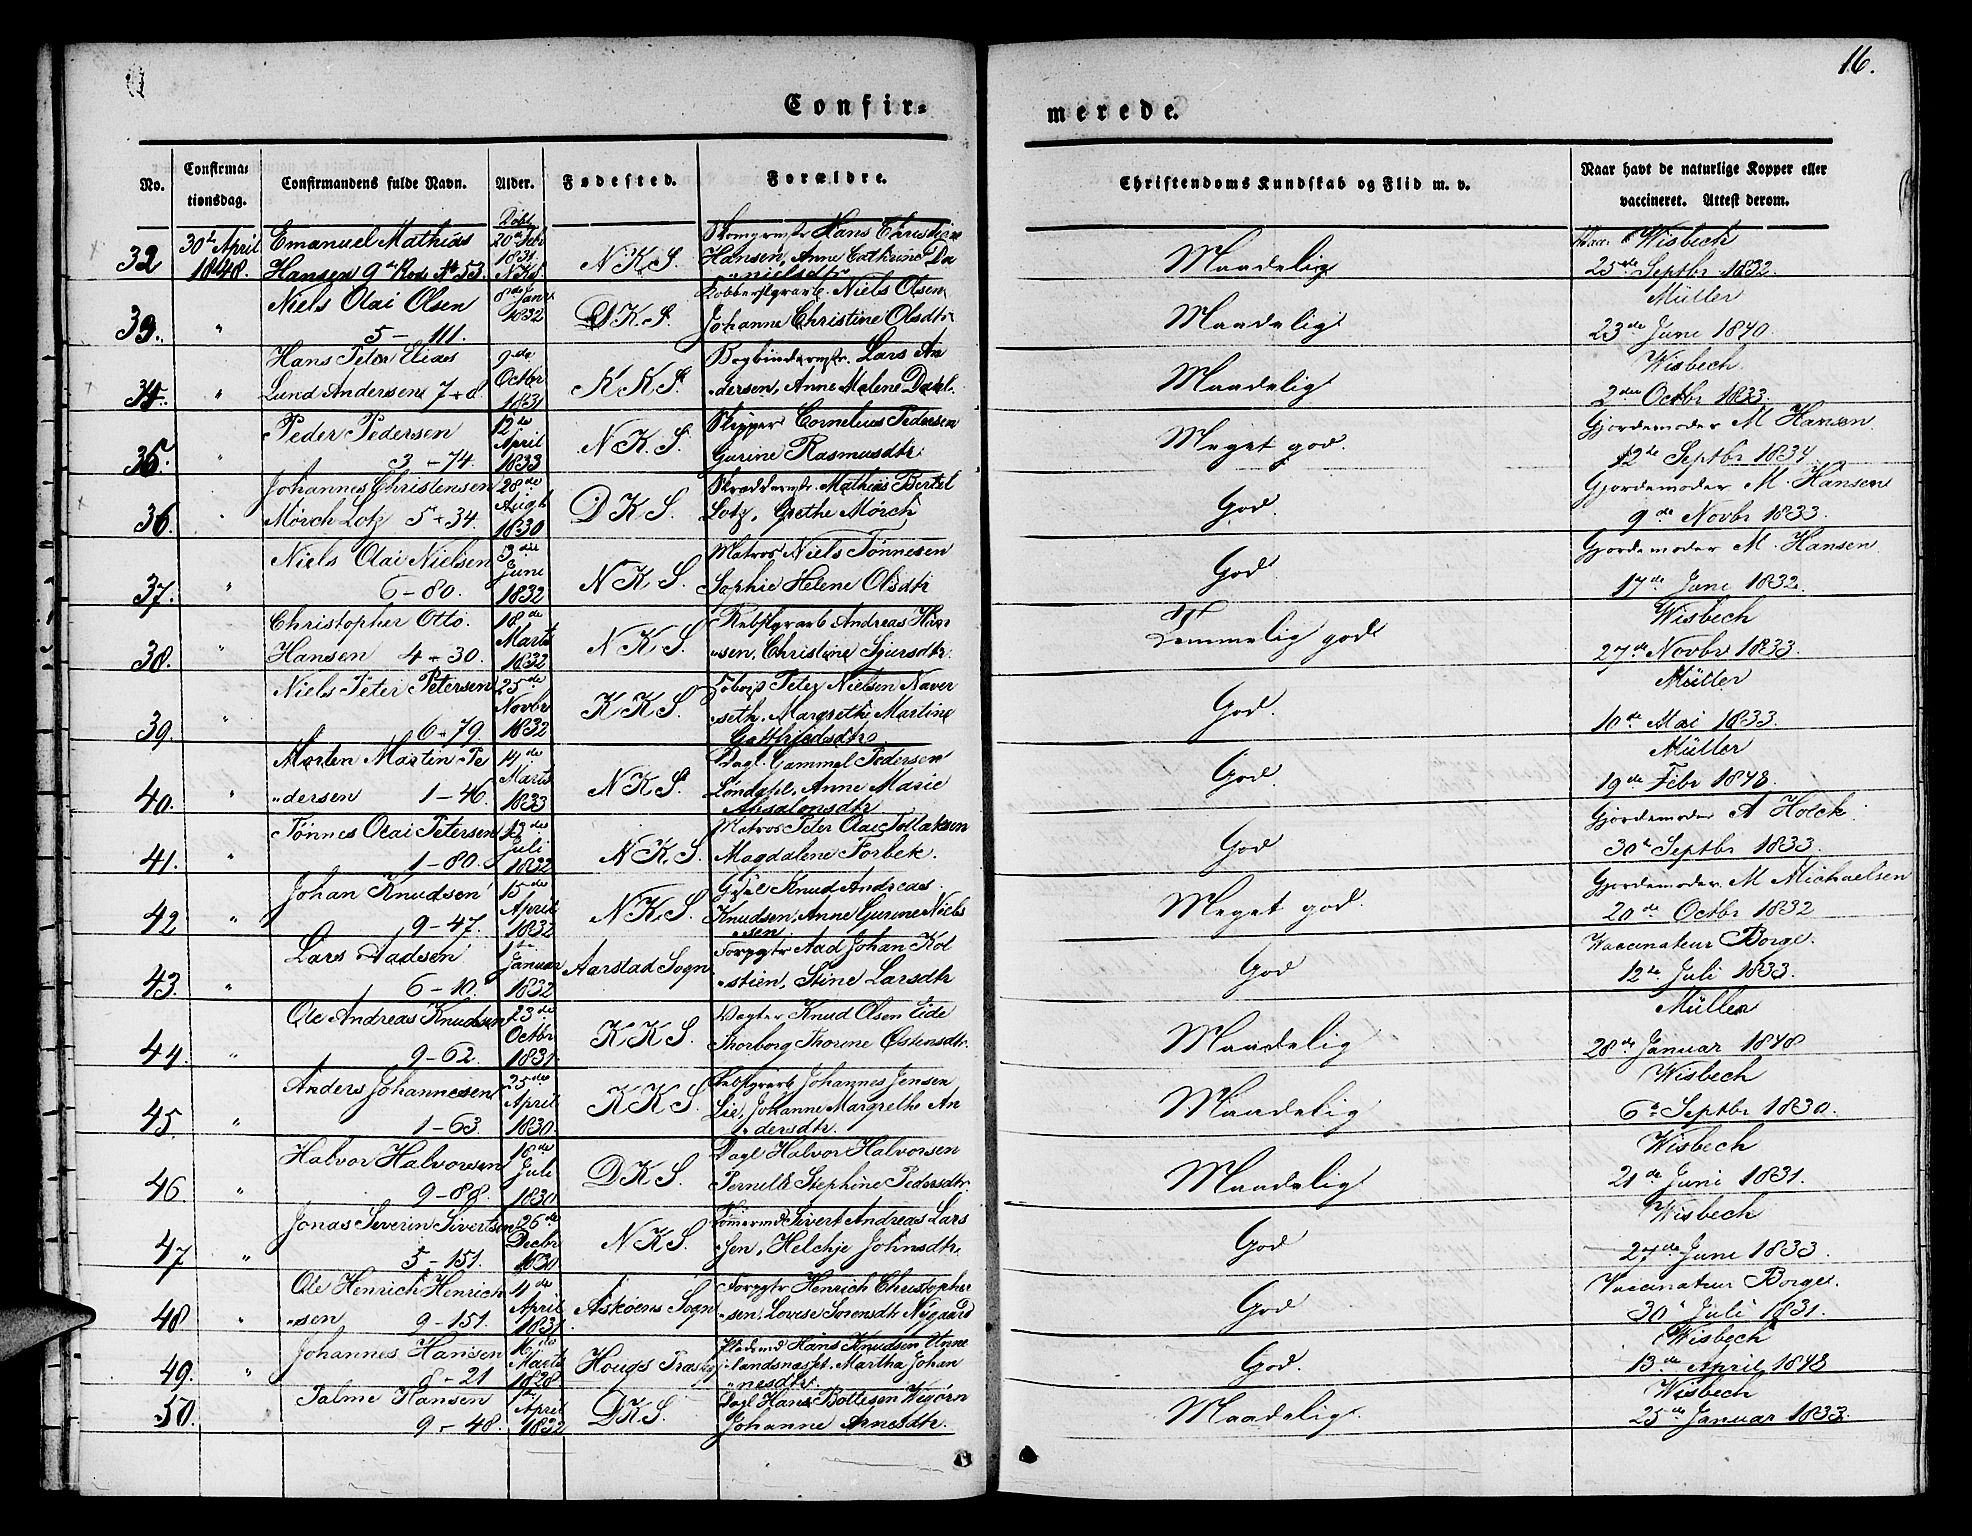 16.
Confir=
merede.
No.
Confirma=
tionsdag.
Confirmandens fulde Navn.
Alder.
Fødested.
Forældre.
Christendoms Kundskab og Flid m. v.
Naar havt de naturlige Kopper eller
vaccineret. Attest derom.
32 30te April 1848. Emanuel Mathias
Hansen 9de Rode No 53.
Døbt 20de Febr 1831 NKS
N.K.S.
Hans Christian
Hansen, Anne Cathrine Da
nielsdtr
Maadelig
Wisbech
25de Septbr 1832.
33. " Niels Olai Olsen
5 - 111.
8de Janr 1832
D.K.S.
Niels Olsen
Johanne Christine Olsdtr
Maadelig
Müller
23de Juni 1840.
34. " Hans Peter Elias
Lund Andersen 7 - 8.
9de Octbr 1831
K.K.S.
Bogbindermstr. Lars An
dersen, Anne Malene Dahl.
Maadelig
Wisbech
2den Octbr 1833.
35. " Peder Pedersen
3 - 74.
12te April 1833
N.K.S.
Skipper Cornelius Pedersen
Gurine Rasmusdtr.
Meget god.
Gjordemoder M Hansen
12te Septbr 1834
36. " Johannes Christensen
Mørch Lotz 5 - 34.
28de Augt 1830
D.K.S.
Skræddermstr. Mathias Bertel
Lotz, Grethe Mørch
God.
Gjordemoder M. Hansen
9de Novbr 1833.
37. " Niels Olai Nielsen
6 - 80.
3de Juni 1832
N.K.S.
Matros Niels Tønnesen
Sophie Helene Olsdtr
God.
Gjordemoder M. Hansen
17de Juni 1832.
38. " Christopher Otto
Hansen 4 - 30.
18de Marts 1832
N.K.S.
Rebslgrarb Andreas Han
sen, Christine Sjursdtr.
Temmelig god
Wisbech
27de Novbr 1833.
39. " Niels Peter Petersen
6 - 79.
25de Novbr 1832
K.K.S.
Peter Nielsen Naver
seth. Margrethe Martine
Gottfriedsdtr
God.
Müller
10de Mai 1833.
40. " Morten Martin Pe
dersen 1 - 46.
4de Marts 1833
N.K.S.
Dagl. Gammel Pedersen
Londahl, Anne Marie
Absalonsdtr
God
Müller
19de Febr 1848.
41. " Tønnes Olai Petersen
1 - 80.
13de Juli 1832
N.K.S.
Matros Peter Olai Tollaksen
Magdalene Torbek.
God
Gjordemoder A Holck.
30te Septbr 1833.
42 " Johan Knudsen
9 - 47.
15de April 1832
N.K.S.
Knud Andreas
Knudsen, Anne Gurine Niels
sen
Meget god.
Gjordemoder M Michaelsen
20de Octbr 1832
43. " Lars Aadsen
6 - 10.
1te Januar 1832
Aarstad Sogn
Forpgtr Aad Johan Kol
stien, Stine Larsdtr
God
Vaccinateur Borge.
12te Juli 1833.
44. " Ole Andreas Knudsen
9 - 62.
23de Octbr 1831
K.K.S.
Vægter Knud Olsen Eide
Thorborg Thorine Østensdtr.
Maadelig
Müller
28de Januar 1848
45. " Anders Johannesen
1 - 63.
25de April 1830
K.K.S.
Rebslgrarb Johannes Jensen
Lie, Johanne Margrethe An
dersdtr.
Maadelig
Wisbech
6te Septbr 1830.
46 " Halvor Halvorsen
9 - 88.
18de Juli 1830
D.K.S.
Dagl Halvor Halvorsen
Pernille Stephine Pedersdtr.
Maadelig
Wisbech
21de Juni 1831.
47 " Jonas Severin Sivertsen
5 - 151.
26de Decbr 1830
N.K.S.
Tømermd Sivert Andreas Lars
sen, Helchje Johnsdtr.
God
Wisbech
27de Juni 1833.
48 " Ole Henrich Henrich
sen 9 - 151.
4de April 1831.
Askøens Sogn
Forpgtr Henrich Christopher
sen, Lovise Sørensdtr Nygaard
God
Vaccinateur Borge.
30te Juli 1831.
49. " Johannes Hansen
8 - 21
Marts 1828
Houges Præstgj
Hans Knudsen Unne
landsnæsset. Martha Johan
nesdtr.
God.
Wisbech
13de April 1848
50. Palme Hansen
9 - 48.
April 1832
D.K.S.
Dagl Hans Bottesen Vigørn
Johanne Arnesdtr.
Maadelig.
Wisbech
25de Januar 1833.